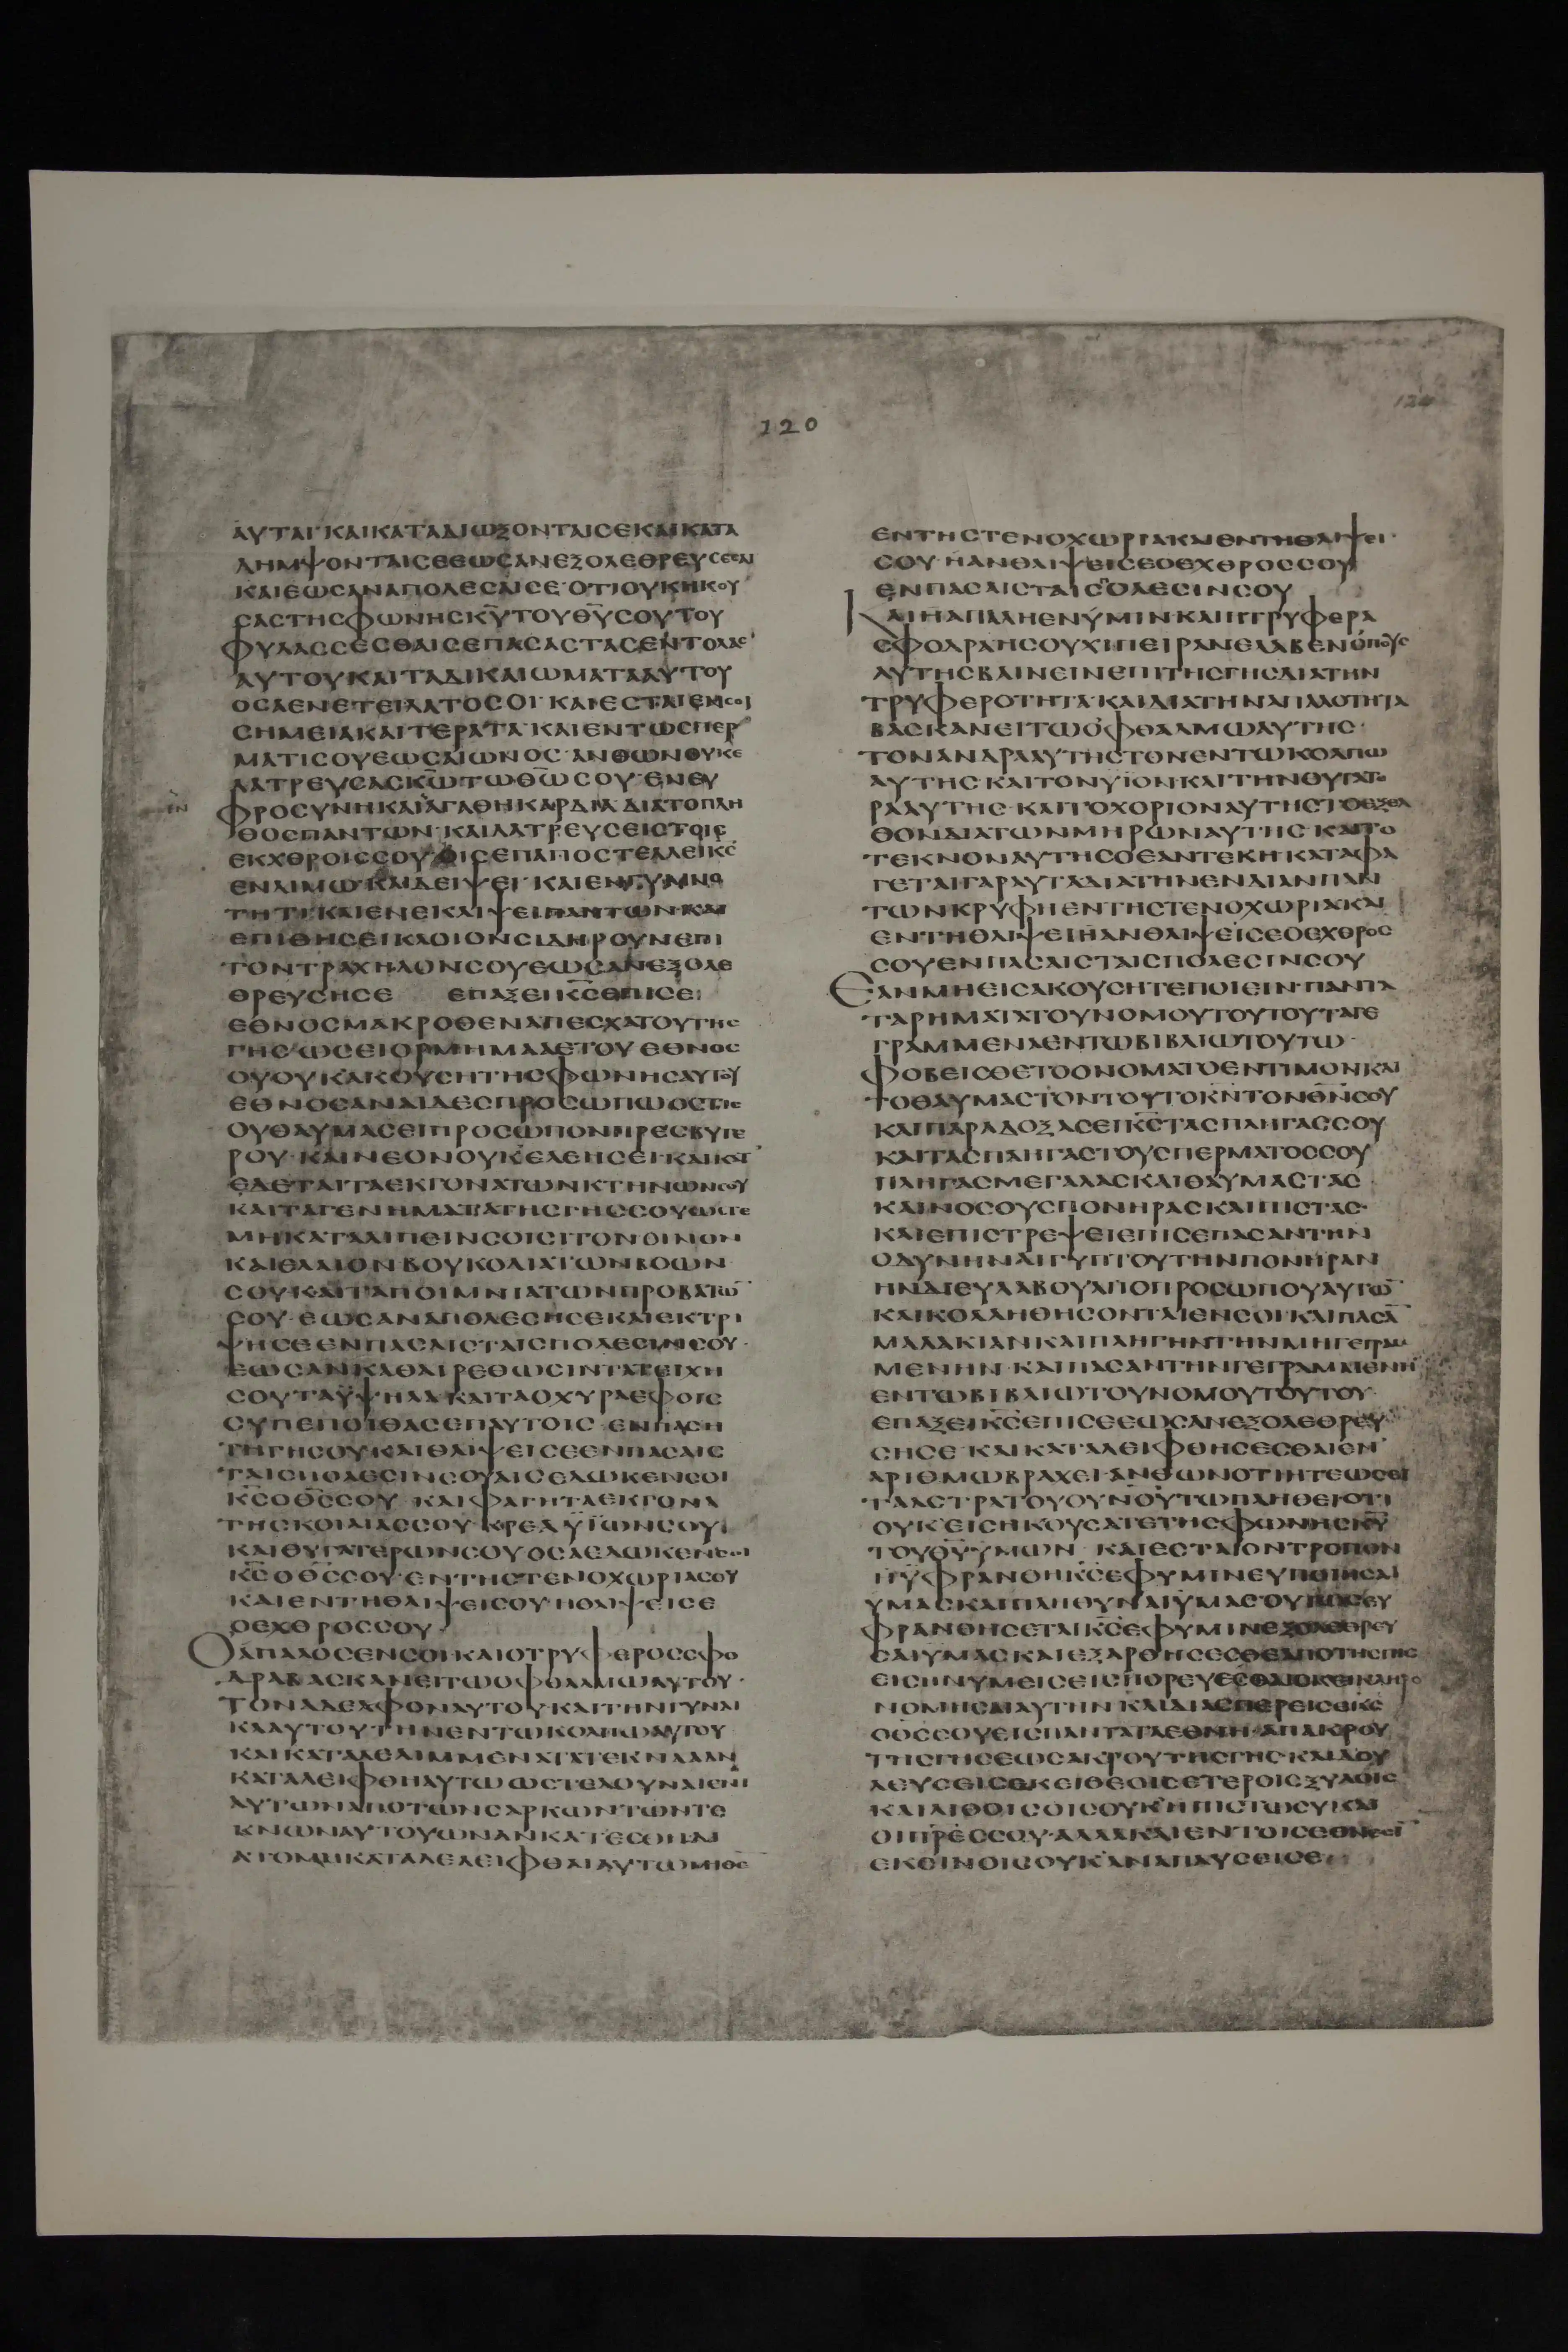 120
ΑΥΤΑΙ· ΚΑΙ ΚΑΤΑΔΙΩΞΟΝΤΑΙ ΣΕ ΚΑΙ ΚΑΤΑ
ΛΗΜΨΟΝΤΑΙ ΣΕ ΕΩΣ ΑΝ ΕΞΟΛΕΘΡΕΥΣΕ ΣΕ
ΚΑΙ ΕΩΣ ΑΝ ΑΠΟΛΕΣΑΙ ΣΕ· ΟΤΙ ΟΥΚ ΗΚΟΥ
ΣΑΣ ΤΗΣ ΦΩΝΗΣ Κ̅Υ̅ ΤΟΥ Θ̅Υ̅ ΣΟΥ ΤΟΥ
ΦΥΛΑΣΣΕΣΘΑΙ ΣΕ ΠΑΣΑΣ ΤΑΣ ΕΝΤΟΛΑΣ
ΑΥΤΟΥ ΚΑΙ ΤΑ ΔΙΚΑΙΩΜΑΤΑ ΑΥΤΟΥ
ΟΣΑ ΕΝΕΤΕΙΛΑΤΟ ΣΟΙ· ΚΑΙ ΕΣΤΑΙ ΕΝ ΣΟΙ
ΣΗΜΕΙΑ ΚΑΙ ΤΕΡΑΤΑ· ΚΑΙ ΕΝ ΤΩ ΣΠΕΡ
ΜΑΤΙ ΣΟΥ ΕΩΣ ΑΙΩΝΟΣ· ΑΝΘ ΩΝ ΟΥΚ Ε
ΛΑΤΡΕΥΣΑΣ Κ̅Ω̅ ΤΩ Θ̅Ω̅ ΣΟΥ· ΕΝ ΕΥ
ΦΡΟΣΥΝΗ ΚΑΙ ΑΓΑΘΗ ΚΑΡΔΙΑ ΔΙΑ ΤΟ ΠΛΗ
ΘΟΣ ΠΑΝΤΩΝ· ΚΑΙ ΛΑΤΡΕΥΣΕΙΣ ΤΟΙΣ
ΕΚΧΘΡΟΙΣ ΣΟΥ ΟΙΣ ΕΠΑΠΟΣΤΕΛΛΕΙ Κ̅Σ̅
ΕΝ ΛΙΜΩ ΚΑΙ ΔΕΙΨΕΙ· ΚΑΙ ΕΝ ΓΥΜΝΟ
ΤΗΤΙ· ΚΑΙ ΕΝ ΕΚΛΙΨΕΙ ΠΑΝΤΩΝ· ΚΑΙ
ΕΠΙΘΗΣΕΙ ΚΛΟΙΟΝ ΣΙΔΗΡΟΥΝ ΕΠΙ
ΤΟΝ ΤΡΑΧΗΛΟΝ ΣΟΥ ΕΩΣ ΑΝ ΕΞΟΛΕ
ΘΡΕΥΣΗ ΣΕ ΕΠΑΞΕΙ Κ̅Σ̅ ΕΠΙ ΣΕ
ΕΘΝΟΣ ΜΑΚΡΟΘΕΝ ΑΠ ΕΣΧΑΤΟΥ ΤΗΣ
ΓΗΣ ΩΣΕΙ ΟΡΜΗΜΑ ΑΕΤΟΥ ΕΘΝΟΣ
Ο ΟΥΚ ΑΚΟΥΣΗ ΤΗΣ ΦΩΝΗΣ ΑΥΤΟΥ
ΕΘΝΟΣ ΑΝΑΙΔΕΣ ΠΡΟΣΩΠΩ ΟΣΤΙΣ
ΟΥ ΘΑΥΜΑΣΕΙ ΠΡΟΣΩΠΟΝ ΠΡΕΣΒΥΤΕ
ΡΟΥ· ΚΑΙ ΝΕΟΝ ΟΥΚ ΕΛΕΗΣΕΙ· ΚΑΙ ΚΑΤ
ΕΔΕΤΑΙ ΤΑ ΕΚΓΟΝΑ ΤΩΝ ΚΤΗΝΩΝ ΣΟΥ
ΚΑΙ ΤΑ ΓΕΝΗΜΑΤΑ ΤΗΣ ΓΗΣ ΣΟΥ ΩΣΤΕ
ΜΗ ΚΑΤΑΛΙΠΕΙΝ ΣΟΙ ΣΙΤΟΝ ΟΙΝΟΝ
ΚΑΙ ΕΛΑΙΟΝ ΒΟΥΚΟΛΙΑ ΤΩΝ ΒΟΩΝ
ΣΟΥ· ΚΑΙ ΤΑ ΠΟΙΜΝΙΑ ΤΩΝ ΠΡΟΒΑΤΩ̅
ΣΟΥ· ΕΩΣ ΑΝ ΑΠΟΛΕΣΗ ΣΕ ΚΑΙ ΕΚΤΡΙ
ΨΗ ΣΕ ΕΝ ΠΑΣΑΙΣ ΤΑΙΣ ΠΟΛΕΣΙΝ ΣΟΥ·
ΕΩΣ ΑΝ ΚΑΘΑΙΡΕΘΩΣΙΝ ΤΑ ΤΕΙΧΗ
ΣΟΥ ΤΑ ΫΨΗΛΑ ΚΑΙ ΤΑ ΟΧΥΡΑ ΕΦ ΟΙΣ
ΣΥ ΠΕΠΟΙΘΑΣ ΕΠ ΑΥΤΟΙΣ· ΕΝ ΠΑΣΗ
ΤΗ ΓΗ ΣΟΥ ΚΑΙ ΘΛΙΨΕΙ ΣΕ ΕΝ ΠΑΣΑΙΣ
ΤΑΙΣ ΠΟΛΕΣΙΝ ΣΟΥ ΑΙΣ ΕΔΩΚΕΝ ΣΟΙ
Κ̅Σ̅ Ο Θ̅Σ̅ ΣΟΥ· ΚΑΙ ΦΑΓΗ ΤΑ ΕΚΓΟΝΑ
ΤΗΣ ΚΟΙΛΙΑΣ ΣΟΥ· ΚΡΕΑ ΫΙΩΝ ΣΟΥ
ΚΑΙ ΘΥΓΑΤΕΡΩΝ ΣΟΥ ΟΣΑ ΕΔΩΚΕΝ ΣΟΙ
Κ̅Σ̅ Ο Θ̅Σ̅ ΣΟΥ· ΕΝ ΤΗ ΣΤΕΝΟΧΩΡΙΑ ΣΟΥ
ΚΑΙ ΕΝ ΤΗ ΘΛΙΨΕΙ ΣΟΥ· Η ΘΛΙΨΕΙ ΣΕ
Ο ΕΧΘΡΟΣ ΣΟΥ·
Ο ΑΠΑΛΟΣ ΕΝ ΣΟΙ ΚΑΙ Ο ΤΡΥΦΕΡΟΣ ΣΦΟ
ΔΡΑ ΒΑΣΚΑΝΕΙ ΤΩ ΟΦΘΑΛΜΩ ΑΥΤΟΥ·
ΤΟΝ ΑΔΕΛΦΟΝ ΑΥΤΟΥ ΚΑΙ ΤΗΝ ΓΥΝΑΙ
ΚΑ ΑΥΤΟΥ ΤΗΝ ΕΝ ΤΩ ΚΟΛΠΩ ΑΥΤΟΥ
ΚΑΙ ΚΑΤΑΛΕΛΙΜΜΕΝΑ ΤΕΚΝΑ Α ΑΝ
ΚΑΤΑΛΕΙΦΘΗ ΑΥΤΩ ΩΣΤΕ ΔΟΥΝΑΙ ΕΝΙ
ΑΥΤΩΝ ΑΠΟ ΤΩΝ ΣΑΡΚΩΝ ΤΩΝ ΤΕ
ΚΝΩΝ ΑΥΤΟΥ ΩΝ ΑΝ ΚΑΤΕΣΘΗ ΔΙ
Α ΤΟ ΜΗ ΚΑΤΑΛΕΛΕΙΦΘΑΙ ΑΥΤΩ ΜΗΘΕ̅
ΕΝ ΤΗ ΣΤΕΝΟΧΩΡΙΑ ΚΑΙ ΕΝ ΤΗ ΘΛΙΨΕΙ·
ΣΟΥ· Η ΑΝ ΘΛΙΨΕΙ ΣΕ Ο ΕΧΘΡΟΣ ΣΟΥ
ΕΝ ΠΑΣΑΙΣ ΤΑΙΣ ΠΟΛΕΣΙΝ ΣΟΥ
ΚΑΙ Η ΑΠΑΛΗ ΕΝ ΫΜΙΝ ΚΑΙ Η ΤΡΥΦΕΡΑ
ΣΦΟΔΡΑ Η ΣΟΥΧΙ ΠΕΙΡΑΝ ΕΛΑΒΕΝ Ο ΠΟΥΣ
ΑΥΤΗΣ ΒΑΙΝΕΙΝ ΕΠΙ ΤΗΣ ΓΗΣ ΔΙΑ ΤΗΝ
ΤΡΥΦΕΡΟΤΗΤΑ· ΚΑΙ ΔΙΑ ΤΗΝ ΑΠΑΛΟΤΗΤΑ
ΒΑΣΚΑΝΕΙ ΤΩ ΟΦΘΑΛΜΩ ΑΥΤΗΣ·
ΤΟΝ ΑΝΔΡΑ ΑΥΤΗΣ ΤΟΝ ΕΝ ΤΩ ΚΟΛΠΩ
ΑΥΤΗΣ ΚΑΙ ΤΟΝ ΥΙΟΝ ΚΑΙ ΤΗΝ ΘΥΓΑΤΕ
ΡΑ ΑΥΤΗΣ· ΚΑΙ ΤΟ ΧΟΡΙΟΝ ΑΥΤΗΣ ΤΟ ΕΞΕΛ
ΘΟΝ ΔΙΑ ΤΩΝ ΜΗΡΩΝ ΑΥΤΗΣ· ΚΑΙ ΤΟ
ΤΕΚΝΟΝ ΑΥΤΗΣ Ο ΕΑΝ ΤΕΚΗ· ΚΑΤΑΦΑ
ΓΕΤΑΙ ΓΑΡ ΑΥΤΑ ΔΙΑ ΤΗΝ ΕΝΔΙΑΝ ΠΑΝ
ΤΩΝ ΚΡΥΦΗ ΕΝ ΤΗ ΣΤΕΝΟΧΩΡΙΑ ΚΑΙ
ΕΝ ΤΗ ΘΛΙΨΕΙ Η ΑΝ ΘΛΙΨΕΙ ΣΕ Ο ΕΧΘΡΟΣ
ΣΟΥ ΕΝ ΠΑΣΑΙΣ ΤΑΙΣ ΠΟΛΕΣΙΝ ΣΟΥ
ΕΑΝ ΜΗ ΕΙΣΑΚΟΥΣΗΤΕ ΠΟΙΕΙΝ· ΠΑΝΤΑ
ΤΑ ΡΗΜΑΤΑ ΤΟΥ ΝΟΜΟΥ ΤΟΥΤΟΥ ΤΑ ΓΕ
ΓΡΑΜΜΕΝΑ ΕΝ ΤΩ ΒΙΒΛΙΩ ΤΟΥΤΩ·
ΦΟΒΕΙΣΘΕ ΤΟ ΟΝΟΜΑ ΤΟ ΕΝΤΙΜΟΝ ΚΑΙ
ΤΟ ΘΑΥΜΑΣΤΟΝ ΤΟΥΤΟ Κ̅Ν̅ ΤΟΝ Θ̅Ν̅ ΣΟΥ
ΚΑΙ ΠΑΡΑΔΟΞΑΣΕΙ Κ̅Σ̅ ΤΑΣ ΠΛΗΓΑΣ ΣΟΥ
ΚΑΙ ΤΑΣ ΠΛΗΓΑΣ ΤΟΥ ΣΠΕΡΜΑΤΟΣ ΣΟΥ
ΠΛΗΓΑΣ ΜΕΓΑΛΑΣ ΚΑΙ ΘΑΥΜΑΣΤΑΣ·
ΚΑΙ ΝΟΣΟΥΣ ΠΟΝΗΡΑΣ ΚΑΙ ΠΙΣΤΑΣ·
ΚΑΙ ΕΠΙΣΤΡΕΨΕΙ ΕΠΙ ΣΕ ΠΑΣΑΝ ΤΗΝ
ΟΔΥΝΗΝ ΑΙΓΥΠΤΟΥ ΤΗΝ ΠΟΝΗΡΑΝ
ΗΝ ΔΙΕΥΛΑΒΟΥ ΑΠΟ ΠΡΟΣΩΠΟΥ ΑΥΤΩ̅
ΚΑΙ ΚΟΛΛΗΘΗΣΟΝΤΑΙ ΕΝ ΣΟΙ· ΚΑΙ ΠΑΣΑ̅
ΜΑΛΑΚΙΑΝ ΚΑΙ ΠΛΗΓΗΝ ΤΗΝ ΜΗ ΓΕΓΡΑΜ
ΜΕΝΗΝ· ΚΑΙ ΠΑΣΑΝ ΤΗΝ ΓΕΓΡΑΜΜΕΝΗ̅
ΕΝ ΤΩ ΒΙΒΛΙΩ ΤΟΥ ΝΟΜΟΥ ΤΟΥΤΟΥ·
ΕΠΑΞΕΙ Κ̅Σ̅ ΕΠΙ ΣΕ ΕΩΣ ΑΝ ΕΞΟΛΕΘΡΕΥ
ΣΗ ΣΕ· ΚΑΙ ΚΑΤΑΛΕΙΦΘΗΣΕΣΘΑΙ ΕΝ
ΑΡΙΘΜΩ ΒΡΑΧΕΙ· ΑΝΘ ΩΝ ΟΤΙ ΗΤΕ ΩΣΕΙ
ΤΑ ΑΣΤΡΑ ΤΟΥ ΟΥΝΟΥ ΤΩ ΠΛΗΘΕΙ· ΟΤΙ
ΟΥΚ ΕΙΣΗΚΟΥΣΑΤΕ ΤΗΣ ΦΩΝΗΣ Κ̅Υ̅
ΤΟΥ Θ̅Υ̅ ΥΜΩΝ· ΚΑΙ ΕΣΤΑΙ ΟΝ ΤΡΟΠΟΝ
ΗΥΦΡΑΝΘΗ Κ̅Σ̅ ΕΦ ΥΜΙΝ ΕΥ ΠΟΙΗΣΑΙ
ΥΜΑΣ ΚΑΙ ΠΛΗΘΥΝΑΙ ΥΜΑΣ ΟΥΤΩΣ ΕΥ
ΦΡΑΝΘΗΣΕΤΑΙ Κ̅Σ̅ ΕΦ ΥΜΙΝ ΕΞΟΛΕΘΡΕΥ
ΣΑΙ ΥΜΑΣ ΚΑΙ ΕΞΑΡΘΗΣΕΣΘΕ ΑΠΟ ΤΗΣ ΓΗΣ
ΕΙΣ ΗΝ ΥΜΕΙΣ ΕΙΣΠΟΡΕΥΕΣΘΑΙ ΕΚΕΙ ΚΛΗΡΟ
ΝΟΜΗΣΑΙ ΑΥΤΗΝ ΚΑΙ ΔΙΑΣΠΕΡΕΙ ΣΕ Κ̅Σ̅
Ο Θ̅Σ̅ ΣΟΥ ΕΙΣ ΠΑΝΤΑ ΤΑ ΕΘΝΗ· ΑΠ ΑΚΡΟΥ
ΤΗΣ ΓΗΣ ΕΩΣ ΑΚΡΟΥ ΤΗΣ ΓΗΣ· ΚΑΙ ΔΟΥ
ΛΕΥΣΕΙΣ ΕΚΕΙ ΘΕΟΙΣ ΕΤΕΡΟΙΣ ΞΥΛΟΙΣ
ΚΑΙ ΛΙΘΟΙΣ ΟΙΣ ΟΥΚ ΗΠΙΣΤΩ ΣΥ ΚΑΙ
ΟΙ Π̅Ρ̅Ε̅Σ̅ ΣΟΥ· ΑΛΛΑ ΚΑΙ ΕΝ ΤΟΙΣ ΕΘΝΕΣΙ̅
ΕΚΕΙΝΟΙΣ ΟΥΚ ΑΝΑΠΑΥΣΕΙ ΣΕ